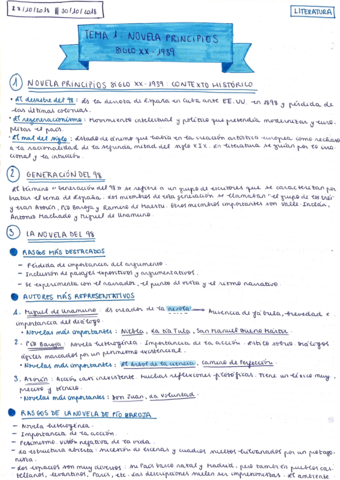 27/10/2018 || 30/10/2018
LITERATURA
TEMA 1. NOVELA PRINCIPIOS
SIGLO XX - 1939
1 NOVELA PRINCIPIOS SIGLO XX - 1939. CONTEXTO HISTÓRICO
• El desastre del 98: es la derrota de España en Cuba ante EE.UU. en 1898 y pérdida de
las últimas colonias.
• El regeneracionismo: Movimiento intelectual y político que pretendía modernizar y euro-
peizar el país.
• El mal del siglo: estado de ánimo que había en la creación artística europea como rechazo
a la racionalidad de la segunda mitad del siglo XIX. En literatura se guían por lo irra-
cional y la intuición.
2 GENERACIÓN DEL 98
El término "Generación del 98" se refiere a un grupo de escritores que se caracterizan por
tratar el tema de España. Los miembros de esta generación se llamaban "el grupo de los tres"
y eran Azorín, Pío Baroja y Ramiro de Maeztu. Otros miembros importantes son Valle Inclán,
Antonio Machado y Miguel de Unamuno.
3 LA NOVELA DEL 98
RASGOS MÁS DESTACADOS
- Pérdida de importancia del argumento.
- Inclusión de pasajes expositivos y argumentativos.
- Se experimenta con el narrador, el punto de vista y el ritmo narrativo.
AUTORES MÁS REPRESENTATIVOS
1. Miguel de Unamuno: es creador de la nivola → Ausencia de fábula, brevedad e
importancia del diálogo
• Novelas más importantes: Niebla, La tía Tula, San Manuel Bueno Mártir.
2. Pío Baroja: Novela heterogénea. Importancia de la acción. Existe sobre diálogos
marcados por un pesimismo existencial.
• Novelas más importantes: El árbol de la ciencia, Camino de Perfección.
3. Azorín: Acción casi inexistente. Muchas reflexiones filosóficas. Tiene un léxico muy
preciso y técnico.
• Novelas más importantes: Don Juan, La voluntad.
RASGOS DE LA NOVELA DE PÍO BAROJA
- Novela heterogénea.
- Importancia de la acción.
- Pesimismo. Visión negativa de la vida.
- La estructura abierta: sucesión de escenas y cuadros sueltos hilvanados por un protago-
nista.
- Los espacios son muy diversos: su País Vasco natal y Madrid, pero también pueblos cas-
tellanos, levantinos, París, etc. Las descripciones suelen ser impresionistas. El ambiente